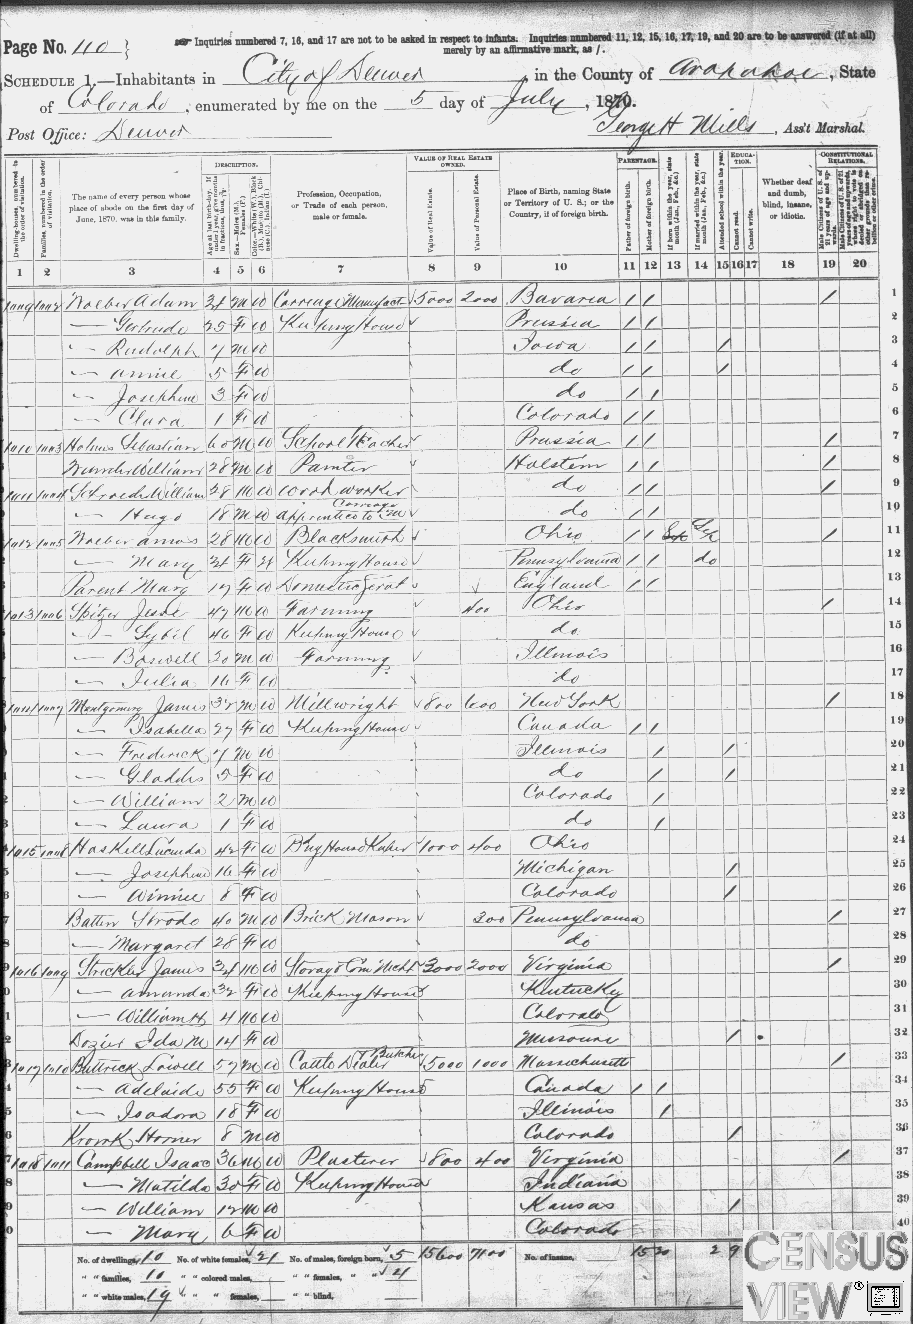 Page No. 110
Inquiries numbered 7, 16, and 17 are not to be asked in respect to infants. Inquiries numbered 11, 12, 15, 16, 17, 19, and 20 are to be answered (if at all)
merely by an affirmative mark, as /.
SCHEDULE 1.—Inhabitants in City of Denver, in the County of Arapahoe, State
of Colorado, enumerated by me on the 5 day of July, 1870.
Post Office: Denver George H Mills, Ass't Marshal.
DESCRIPTION. VALUE OF REAL ESTATE OWNED. PARENTAGE. EDUCATION. CONSTITUTIONAL RELATIONS.
Dwelling-houses, numbered in the order of visitation. Families, numbered in the order of visitation. The name of every person whose place of abode on the first day of June, 1870, was in this family. Profession, Occupation, or Trade of each person, male or female. Value of Real Estate. Value of Personal Estate. Place of Birth, naming State or Territory of U. S.; or the Country, if of foreign birth. Father of foreign birth. Mother of foreign birth. If born within the year, state month (Jan., Feb., &c.) If married within the year, state month (Jan., Feb., &c.) Attended school within the year. Cannot read. Cannot write. Whether deaf and dumb, blind, insane, or idiotic.
1 2 3 4 5 6 7 8 9 10 11 12 13 14 15 16 17 18 19 20
Woeber Adam 34 M W Carriage Manufact 5000 2000 Bavaria / / / 1
— Gertrude 25 F W Keeping House Prussia / / 2
— Rudolph 7 M W Iowa / / / 3
— Annie 5 F W do / / / 4
— Josephine 3 F W do / / 5
— Clara 1 F W Colorado / / 6
Holmes Sebastian 60 M W School Teacher Prussia / / / 7
William 28 M W Painter Holstein / / / 8
William 28 M W Wood worker do / / / 9
— Hugo 18 M W apprentice to Carriage M do / / 10
Woeber Amos 28 M W Blacksmith Ohio / / / 11
— Mary 21 F W Keeping House Pennsylvania / / do 12
Parent Mary 17 F W Domestic Servt England / / 13
Spitzer Jesse 47 M W Farming 400 Ohio / 14
— Sybil 46 F W Keeping House do 15
— Boswell 20 M W Farming Illinois 16
— Julia 16 F W do 17
Montgomery James 38 M W Millwright 800 600 New York / 18
— Isabella 27 F W Keeping House Canada / / 19
— Frederick 7 M W Illinois / / 20
— Gladdis 5 F W do / / 21
— William 2 M W Colorado / 22
— Laura 1 F W do / 23
1015 1008 Haskell Lucinda 42 F W B'ng House Keeper 1000 400 Ohio 24
— Josephine 16 F W Michigan / 25
— Winnie 8 F W Colorado / 26
Batten Strode 40 M W Brick Mason 300 Pennsylvania / 27
— Margaret 28 F W do 28
1016 1009 Strickler James 34 M W Storage & Com Mcht 3000 2000 Virginia / 29
— Amanda 32 F W Keeping House Kentucky 30
— William H 4 M W Colorado 31
Dozier Ida M 14 F W Missouri / 32
1017 1010 Buttrick Lowell 57 M W Cattle Dealer & Butcher 5000 1000 Massachusetts / 33
— Adelaide 55 F W Keeping House Canada / / 34
— Isadora 18 F W Illinois / 35
Homer 8 M W Colorado / 36
1018 1011 Campbell Isaac 36 M W Plasterer 800 400 Virginia / 37
— Matilda 30 F W Keeping House Indiana 38
— William 12 M W Kansas / 39
— Mary 6 F W Colorado 40
No. of dwellings, 10 No. of white females, 21 No. of males, foreign born, 5 15600 7100 No. of insane, 15 20 2 9
" " families, 10 " " colored males, " " females, " " 4
" " white males, 19 " " females, " " blind,
CENSUS
VIEW